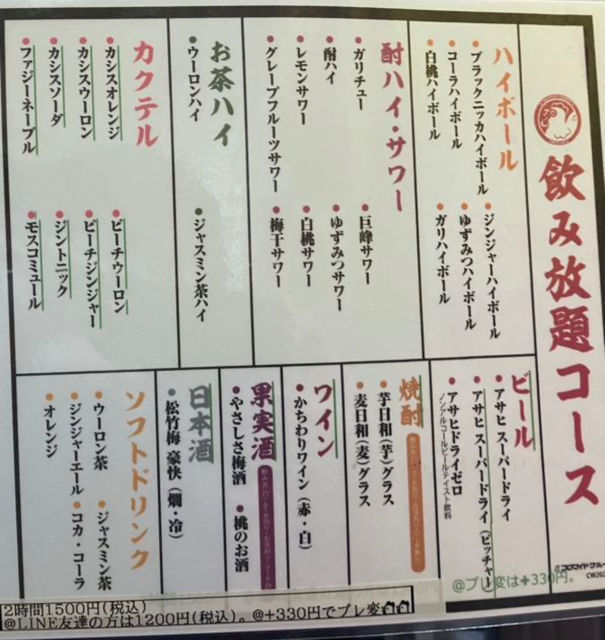 飲み放題コース
ハイボール
ブラックニッカハイボール
コーラハイボール
白桃ハイボール
ジンジャーハイボール
ゆずみつハイボール
ガリハイボール
酎ハイ・サワー
ガリチュー
酎ハイ
レモンサワー
グレープフルーツサワー
巨峰サワー
ゆずみつサワー
白桃サワー
梅干サワー
お茶ハイ
ウーロンハイ
ジャスミン茶ハイ
カクテル
カシスオレンジ
カシスウーロン
カシスソーダ
ファジーネーブル
ピーチウーロン
ピーチジンジャー
ジントニック
モスコミュール
ビール
アサヒ スーパードライ
アサヒ スーパードライ(ピッチャー)
アサヒドライゼロ
ノンアルコールビールテイスト飲料
焼酎
芋日和(芋)グラス
麦日和(麦)グラス
ワイン
かちわりワイン(赤・白)
果実酒
やさしさ梅酒
桃のお酒
日本酒
松竹梅 豪快(燗・冷)
ソフトドリンク
ウーロン茶
ジンジャーエール
オレンジ
ジャスミン茶
コカ・コーラ
@プレ変は+330円。
2時間1500円(税込)
@LINE友達の方は1200円(税込)。@+330円でプレ変